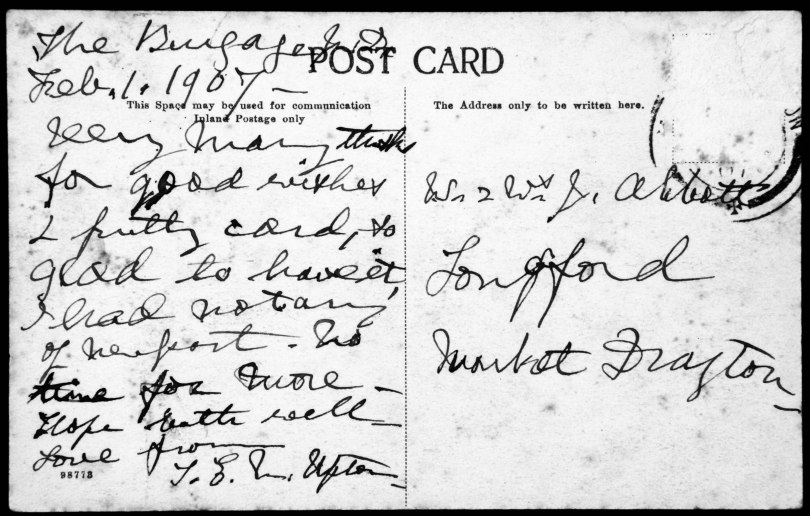 The Burgage
POST CARD
Feb. 1. 1907 –
This Space may be used for communication
Inland Postage only
The Address only to be written here.
Very many thanks
for good wishes
& pretty card, so
glad to have it,
I had not any
of Newport. No
time for more –
Hope both well –
Love from
T. E. M. Upton
98773
Mr & Mrs J. Abbott
Longford
Market Drayton